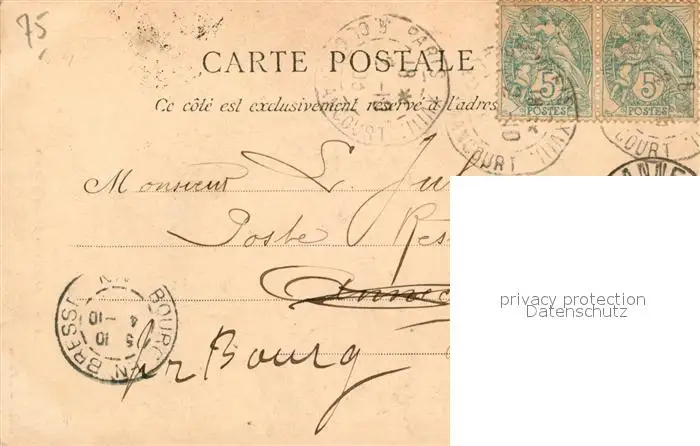 75
CARTE POSTALE
Ce côté est exclusivement réservé à l'adres
5 5
POSTES POSTES
PARIS
ANCOURT
COURT
ANNE
Monsieur L. Jul
Poste Res
Annec
pr Bourg
BOURG
EN BRESSE
5 10
4 -10
privacy protection
Datenschutz